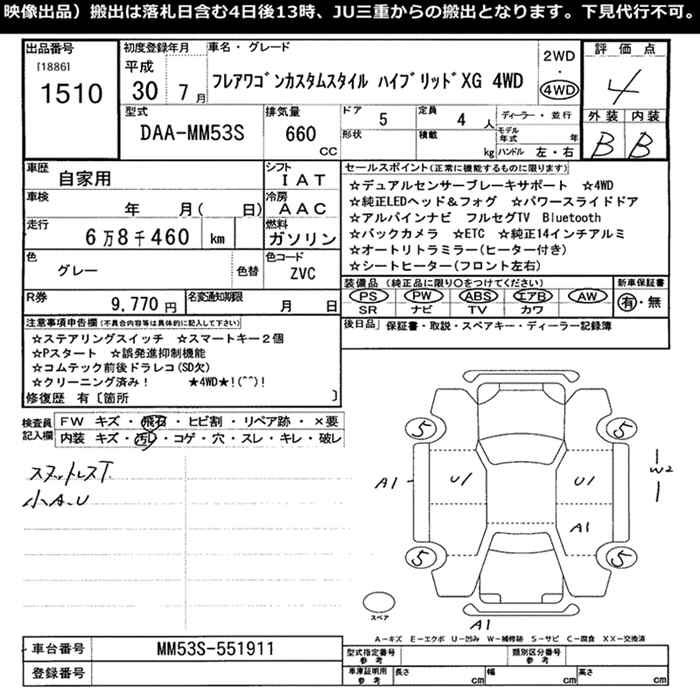 映像出品）搬出は落札日含む4日後13時、JU三重からの搬出となります。下見代行不可。
出品番号
[1886]
1510
初度登録年月
平成
30 7月
車名・グレード
フレアワゴンカスタムスタイル ハイブリッドXG 4WD
2WD
・
4WD
評価点
4
型式
DAA-MM53S
排気量
660
CC
ドア
5
定員
4 人
形状
積載
kg
ディーラー・並行
モデル年式 年
ハンドル 左・右
外装 内装
B B
車歴
自家用
シフト
IAT
車検
年 月( 日)
冷房
AAC
走行
6万8千460 km
燃料
ガソリン
色
グレー
色替
色コード
ZVC
R券
9,770円
名変通知期限
月 日
セールスポイント(正常に機能するものに限ります)
☆デュアルセンサーブレーキサポート ☆4WD
☆純正LEDヘッド&フォグ ☆パワースライドドア
☆アルパインナビ フルセグTV Bluetooth
☆バックカメラ ☆ETC ☆純正14インチアルミ
☆オートリトラミラー(ヒーター付き)
☆シートヒーター(フロント左右)
装備品（純正品に限り○をつけてください）
PS PW ABS エアB AW
SR ナビ TV カワ
新車保証書
有・無
後日品 保証書・取説・スペアキー・ディーラー記録簿
注意事項申告欄(不具合内容等は具体的に記入して下さい)
☆ステアリングスイッチ ☆スマートキー２個
☆Pスタート ☆誤発進抑制機能
☆コムテック前後ドラレコ(SD欠)
☆クリーニング済み！ ★4WD★!(^^)!
修復歴 有〔箇所 〕
検査員記入欄
FW キズ・飛石・ヒビ割・リペア跡・×要
内装 キズ・汚レ・コゲ・穴・スレ・キレ・破レ
スタットレスT
小A.U
5 5
A1 U1 U1 W2
A1
5 5
スペア
A1
A－キズ E－エクボ U－凹み W－補修跡 S－サビ C－腐食 XX－交換済
車台番号
MM53S-551911
登録番号
型式指定番号
参考
類別区分番号
参考
車庫証明用
参考
長さ cm
幅 cm
高さ cm